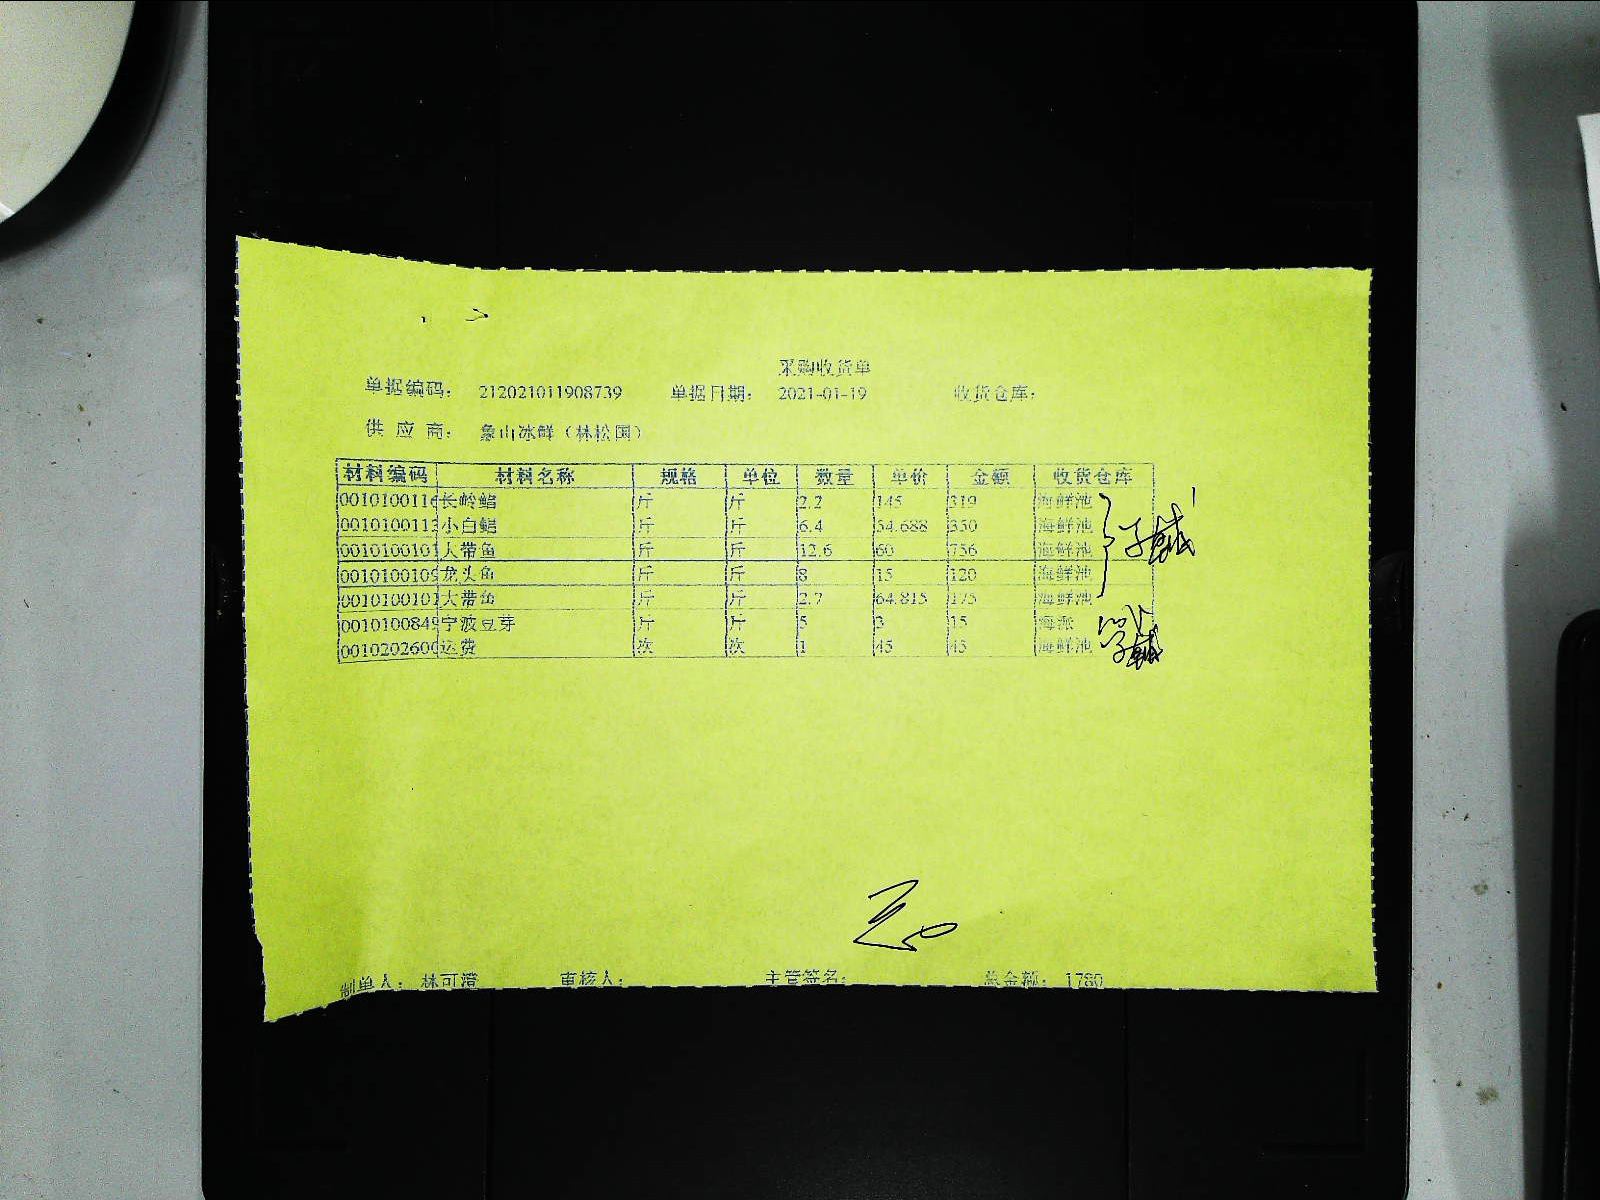 采购收货单
单据编码： 212021011908739 单据日期： 2021-01-19 收货仓库：
供 应 商： 象山冰鲜（林松国）
材料编码 材料名称 规格 单位 数量 单价 金额 收货仓库
001010011 长岭鲳 斤 斤 2.2 145 319 海鲜池
001010011 小白鲳 斤 斤 6.4 54.688 350 海鲜池
001010010 大带鱼 斤 斤 12.6 60 756 海鲜池
001010010 龙头鱼 斤 斤 8 15 120 海鲜池
001010010 大带鱼 斤 斤 2.7 64.815 175 海鲜池
001010084 宁波豆芽 斤 斤 5 3 15
001020260 运费 次 次 1 45 45 海鲜池
制单人： 林可澄 审核人： 主管签名： 总金额： 1780